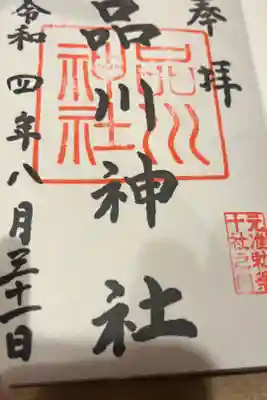 奉拝
品川神社
品川神社
元准勅祭
十社之内
令和四年八月三十一日